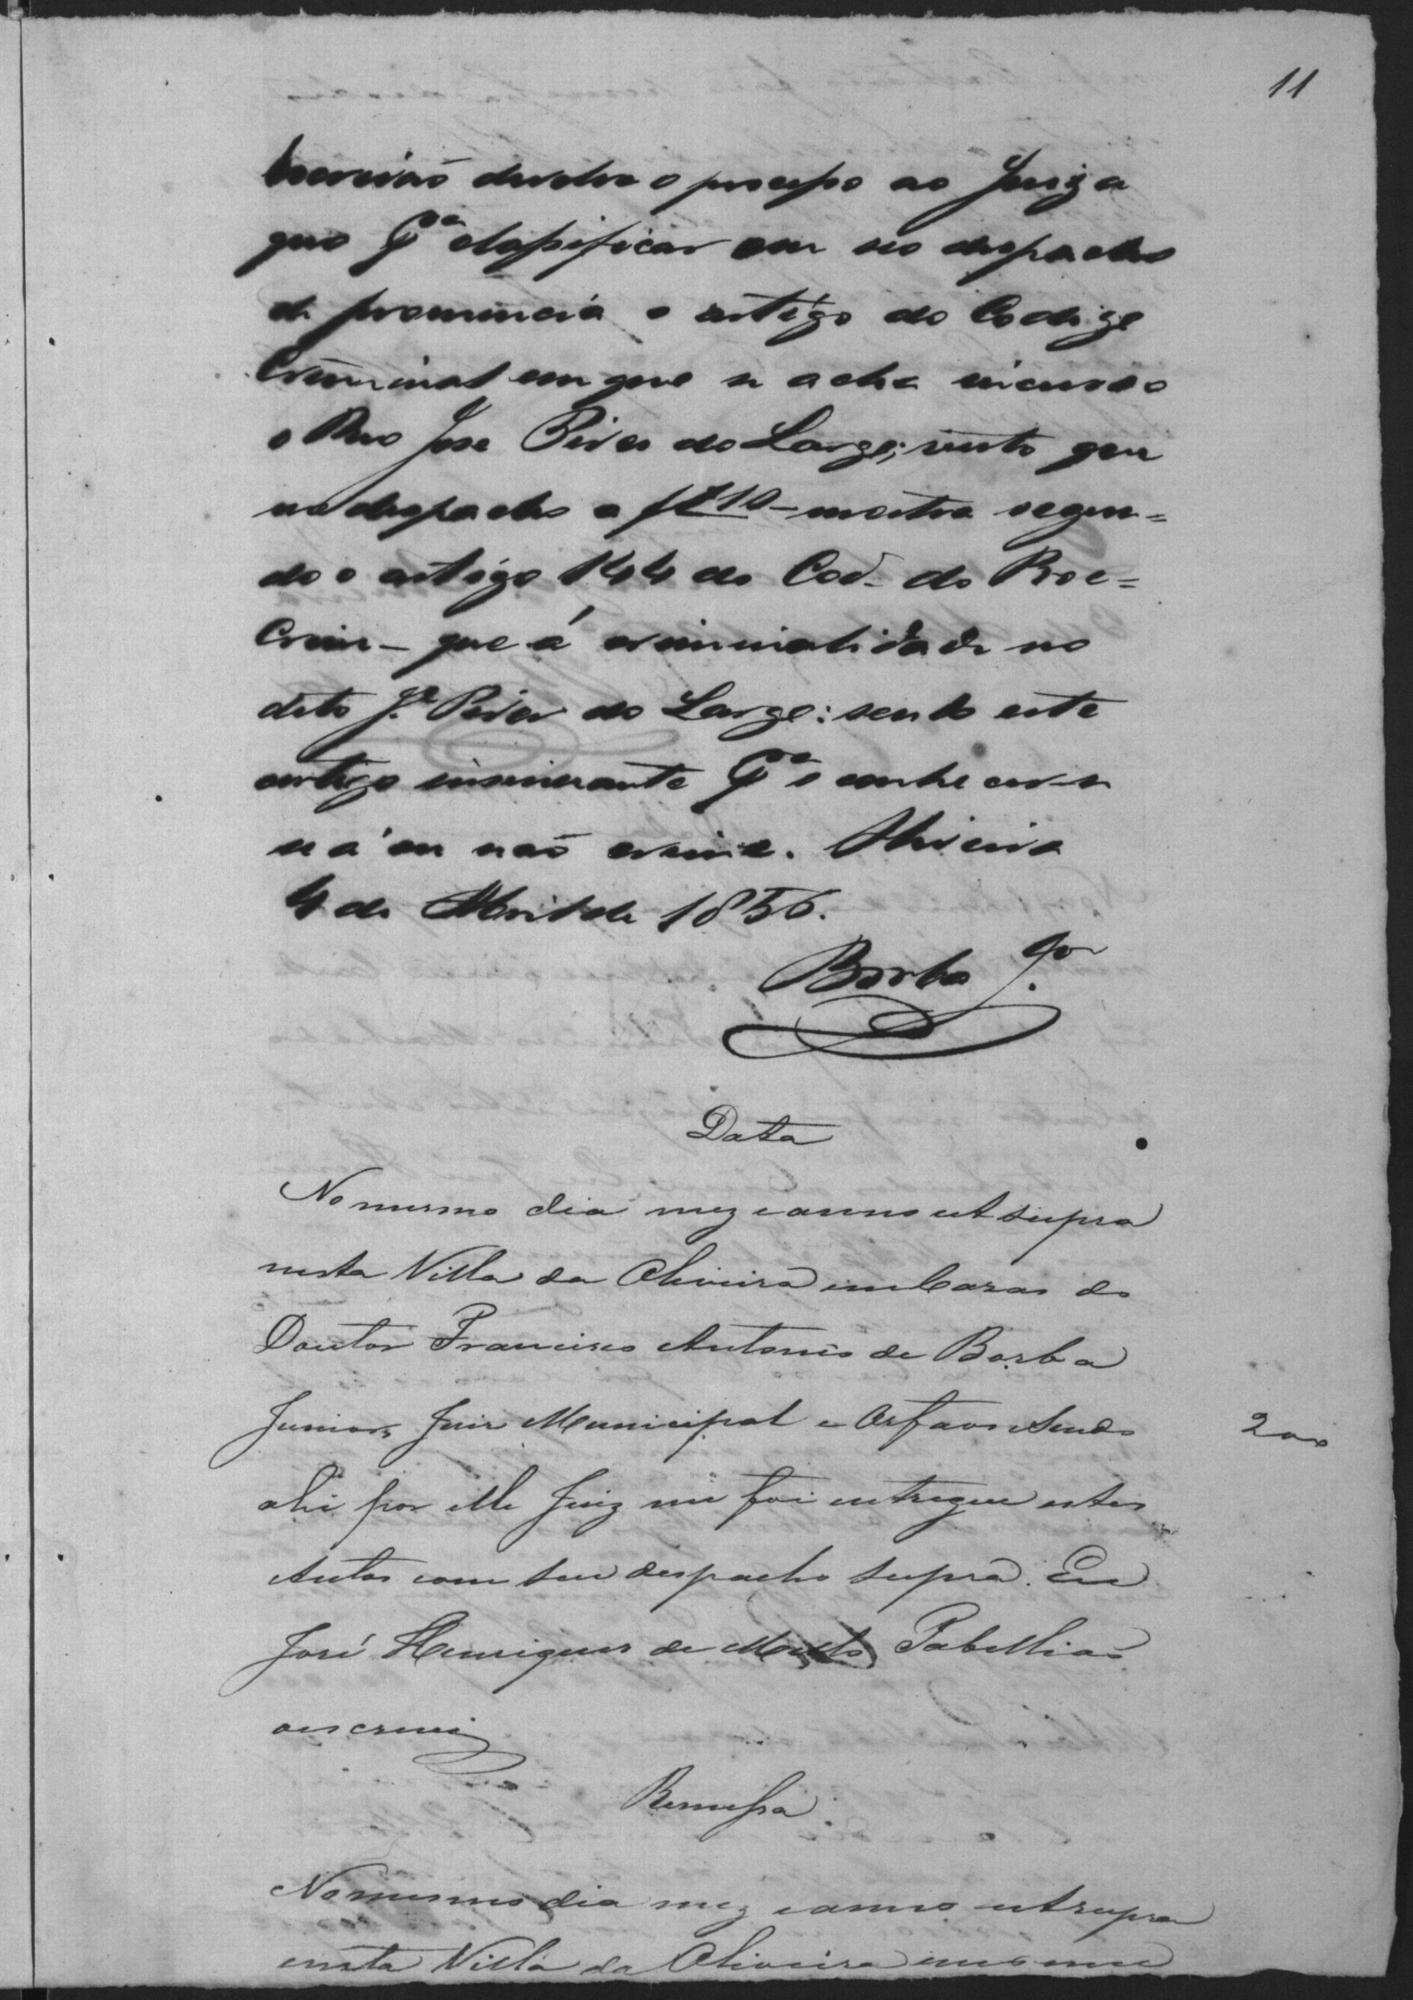 11
Escrivão devolva o processo ao Juiz a
quo Pª classificar em seo despacho
de pronuncia o artigo do Codigo
Criminal em que se acha incurso
o Reo Jose Pires do Largo; visto que
no despacho a f 10 - mostra segun=
do o artigo 144 do Cod. do Proc=
Crim - que á criminalidade no
dito Jᵉ Pires do Largo: sendo este
artigo Pª o conhecer-se
se á ou não crime. Oliveira
4 de Abril de 1856.
Borba Jor
Data
No mesmo dia mez e anno ut supra
nesta Villa da Oliveira em Casas do
Doutor Francisco Antonio de Borba
Junior, Juiz Municipal e Orfaos e Sendo
200
ahi por elle Juiz me foi entregue estes
Autos com seu despacho supra. Eu
José Henriques de Mello Tabellião
o escrevi
Remessa.
No mesmo dia mez e anno ut supra
nesta Villa da Oliveira em meu